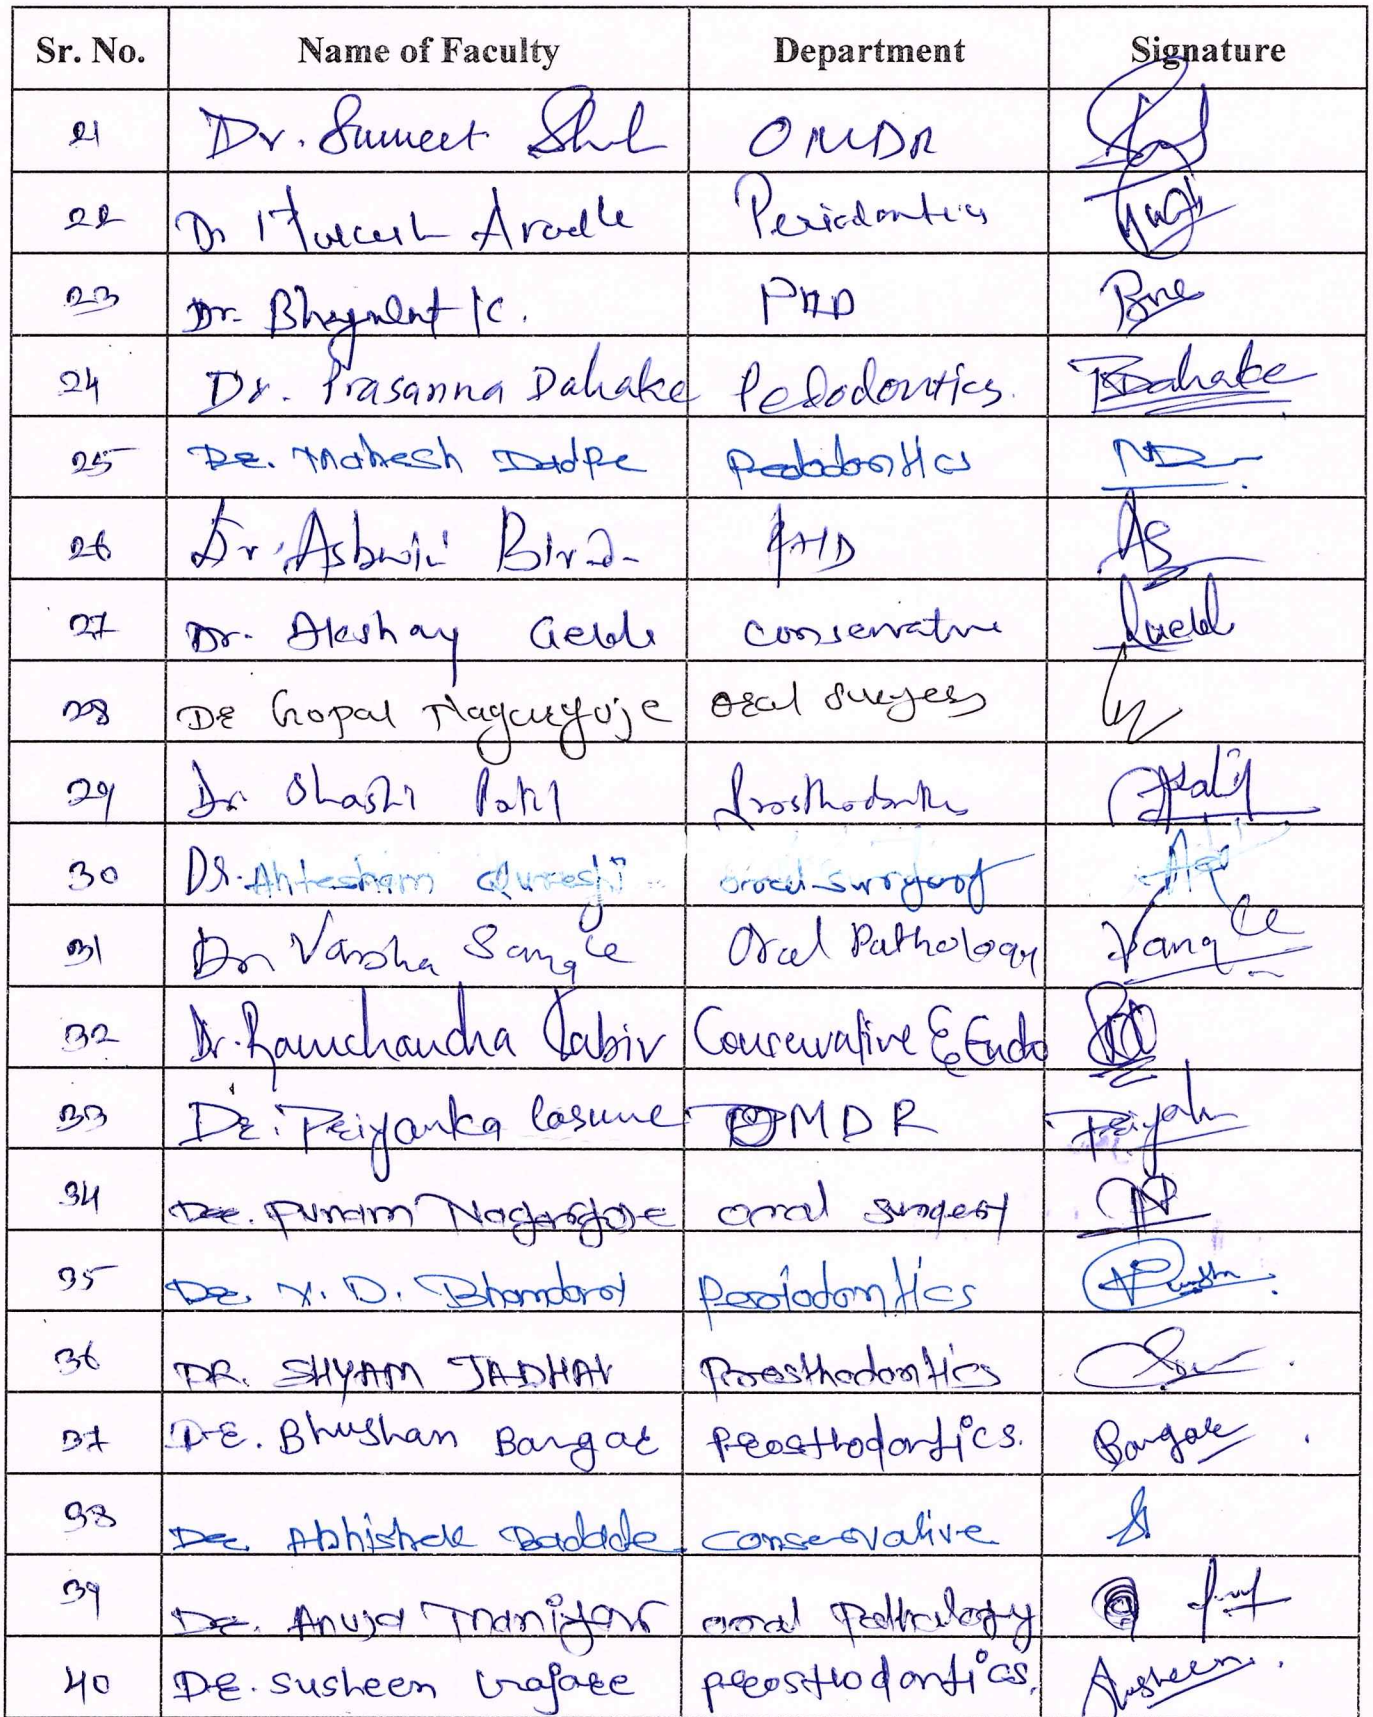 Sr. No. Name of Faculty Department Signature
21 Dr. Sumeet Shah OMDR
22 Dr Periodontics
23 Dr. K. PHD
24 Dr. Prasanna Dahake Pedodontics. Dahake
25 Dr. Mahesh Dadpe Pedodontics
26 Dr. Ashwini PHD
27 Dr. Akshay conservative
28 Dr Gopal Nagargoje oral surgery
29 Dr Shashi Patil Prosthodontics Patil
30 Dr. Ahtesham Qureshi oral surgery
31 Dr Varsha Sangle Oral Pathology
32 Dr. Ramchandra Kabir Conservative & Endo
33 Dr. Priyanka Lasune OMDR
34 Dr. Punam Nagargoje oral surgery
35 Dr. Y. D. Bhandari Periodontics
36 DR. SHYAM JADHAV Prosthodontics
37 Dr. Bhushan Bangar Prosthodontics. Bangar
38 Dr. Abhishek Badade conservative
39 Dr. Anuja Maniyar oral Pathology
40 Dr. Susheen Gajare prosthodontics. Susheen